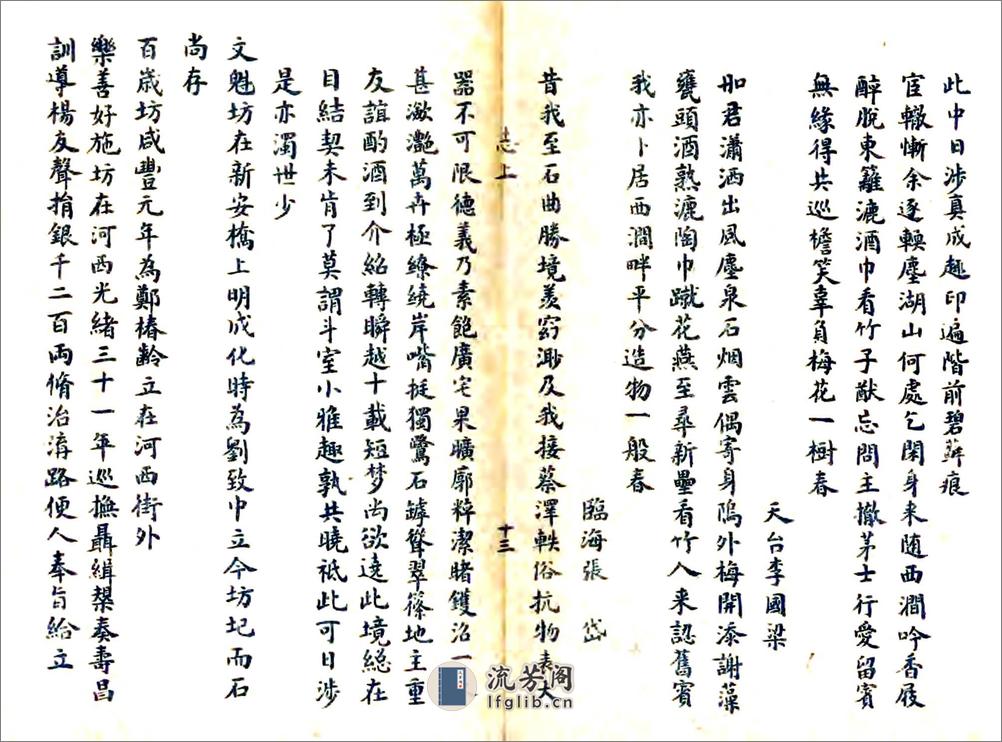 此中日涉真成趣印遍階前碧蘚痕
宦轍慚余逐輭塵湖山何處乞閑身来随西澗吟香屐
醉脫東籬漉酒巾看竹子猷忘問主撤茅士行愛留賓
無緣得共巡檐笑辜負梅花一樹春
天台李國梁
如君瀟洒出風塵泉石烟雲偶寄身隖外梅開添謝藻
甕頭酒熟漉陶巾蹴花燕至尋新壘看竹人来認舊賓
我亦卜居西澗畔平分造物一般春
臨海張 岱
昔我至石曲勝境羡窈渺及我接蔡澤軼俗抗物表大
志上
十三
器不可限德義乃素飽廣宅果曠廓粹潔睹鑊沼一
甚瀲灔萬卉極繚繞岸嘴挺獨鷺石罅聳翠篠地主重
友誼酌酒到介紹轉瞬越十載短梦尚欲遶此境總在
目結契未肯了莫謂斗室小雅趣孰共曉祗此可日涉
是亦濁世少
文魁坊在新安橋上明成化時為劉致中立今坊圮而石
尚存
百歲坊咸豐元年為鄭椿齡立在河西街外
樂善好施坊在河西光緒三十一年巡撫聶緝椝奏壽昌
訓導楊友聲捐銀千二百兩脩治湾路便人奉旨給立
流芳阁
lfglib.cn